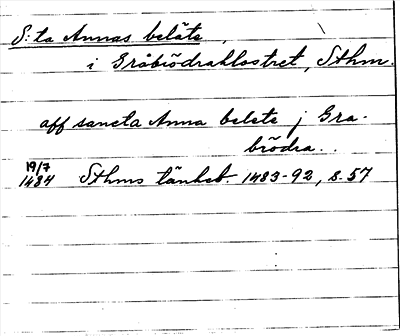 S:ta Annas beläte,
i Gråbrödraklostret, Sthm.
aff sancta Anna belete j Gra-
brödra..
19/7
1484 Sthms tänkeb. 1483-92, s. 57